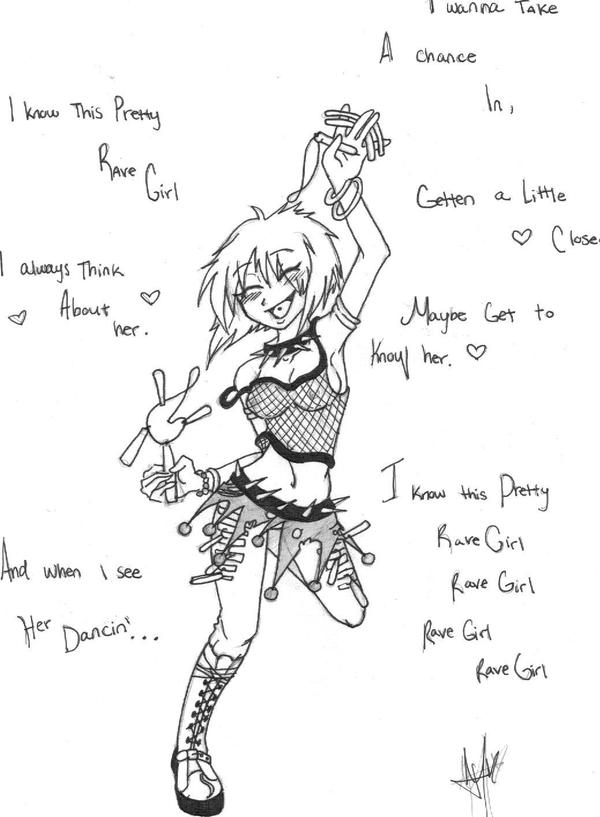 I know This Pretty
Rave
Girl
I always Think
About
her.
And when I see
Her Dancin'...
I wanna Take
A chance
In,
Getten a Little
Closer
Maybe Get to
Know her.
I know this Pretty
Rave Girl
Rave Girl
Rave Girl
Rave Girl